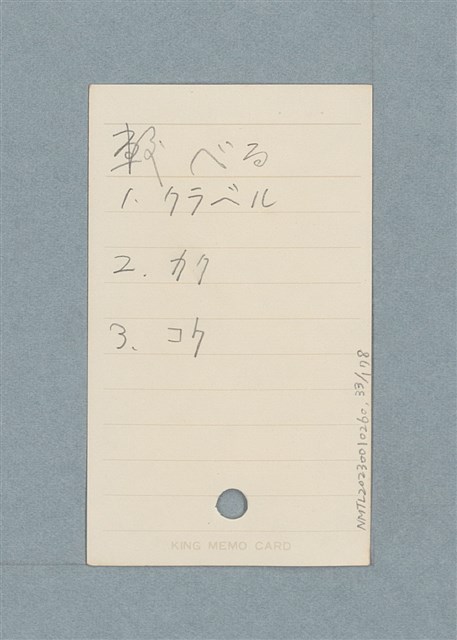 較べる
1. クラベル
2. カク
3. コク
KING MEMO CARD
NMTL20230010260, 33/178